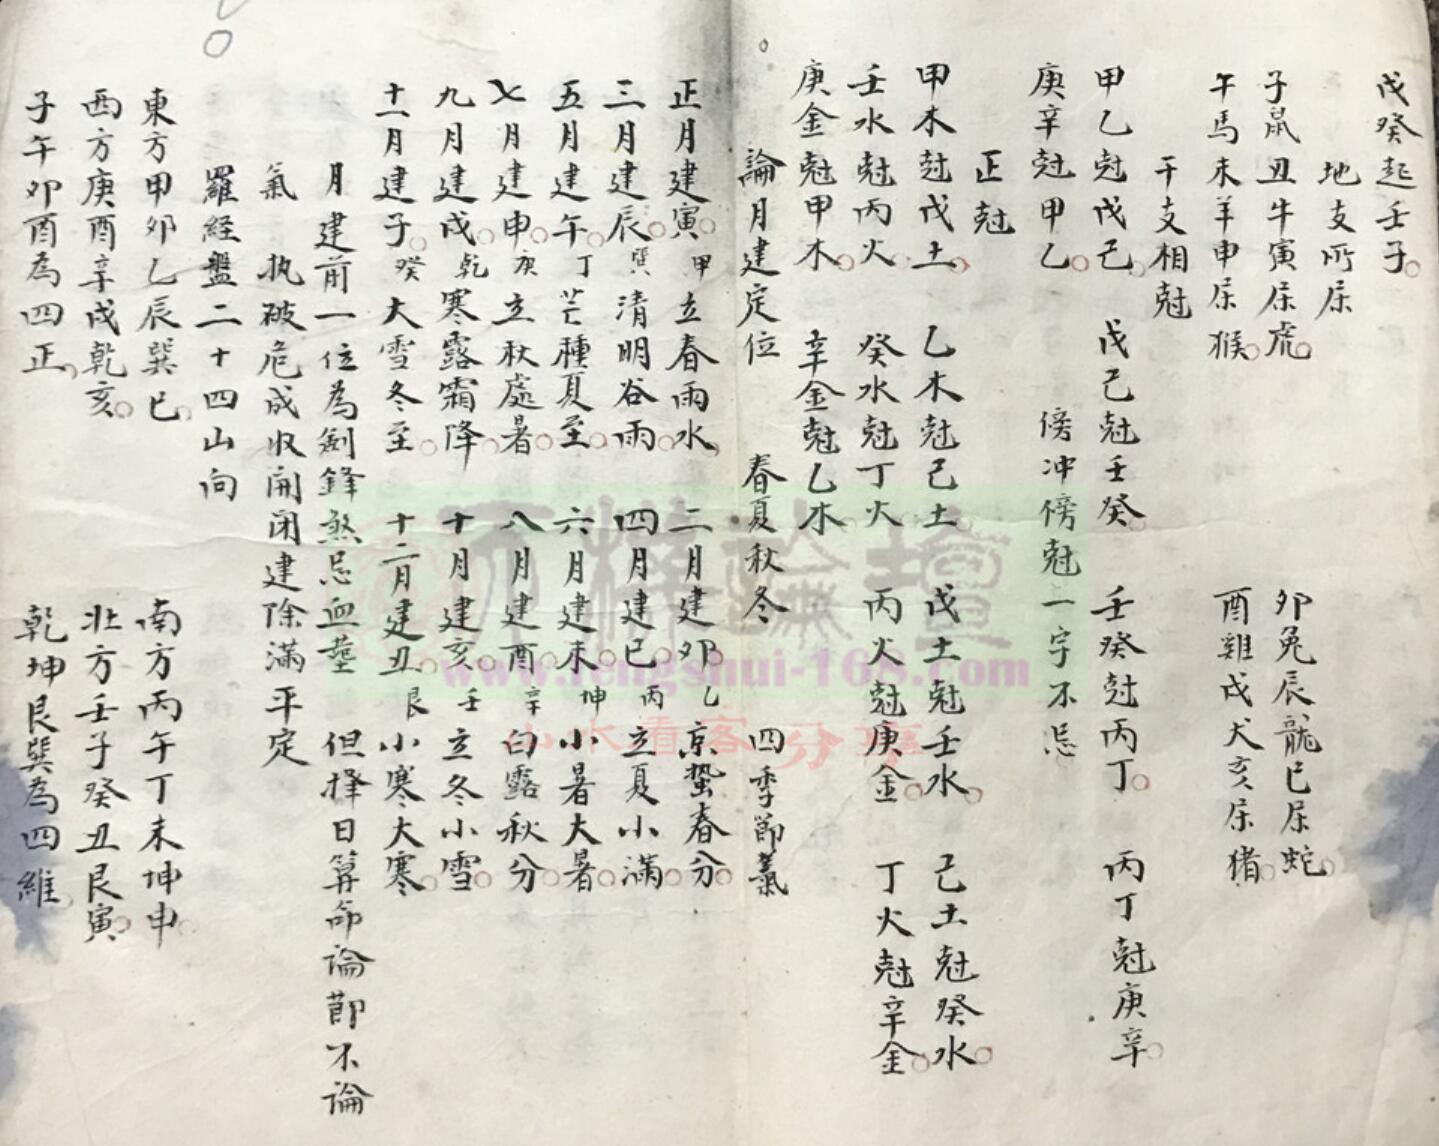 戊癸起壬子
地支所屌
子鼠丑牛寅屌虎 卯兔辰龍巳屌蛇
午馬未羊申屌猴 酉雞戌犬亥屌猪
干支相尅
甲乙尅戊己 戊己尅壬癸 壬癸尅丙丁 丙丁尅庚辛
庚辛尅甲乙 傍冲傍尅一字不忌
正尅
甲木尅戊土 乙木尅己土 戊土尅壬水 己土尅癸水
壬水尅丙火 癸水尅丁火 丙火尅庚金 丁火尅辛金
庚金尅甲木 辛金尅乙木
論月建定位 春夏秋冬 四季節氣
正月建寅甲立春雨水 二月建卯乙京蟄春分
三月建辰巽清明谷雨 四月建巳丙立夏小滿
五月建午丁芒種夏至 六月建未坤小暑大暑
七月建申庚立秋處暑 八月建酉辛白露秋分
九月建戌乾寒露霜降 十月建亥壬立冬小雪
十一月建子癸大雪冬至 十二月建丑艮小寒大寒
月建前一位為劍鋒煞忌血塟 但擇日算命論節不論
氣 执破危成收開闭建除滿平定
羅経盤二十四山向
東方甲卯乙辰巽巳 南方丙午丁未坤申
西方庚酉辛戌乾亥 北方壬子癸丑艮寅
子午卯酉為四正 乾坤艮巽為四維
天機論壇
www.fengshui-168.com
山水看客分享